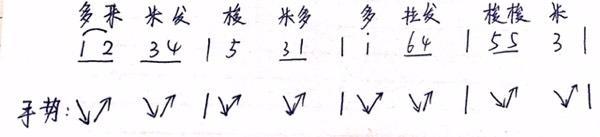 多来 米发 梭 米多 多 拉发 梭梭 米
1 2 3 4 | 5 3 1 | i 6 4 | 5 5 3 |
手势: ↘↗ ↘↗ | ↘↗ ↘↗ | ↘↗ ↘↗ | ↘↗ ↘↗ |